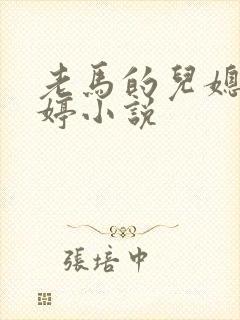 老馬的兒媳
婷小說
張培中